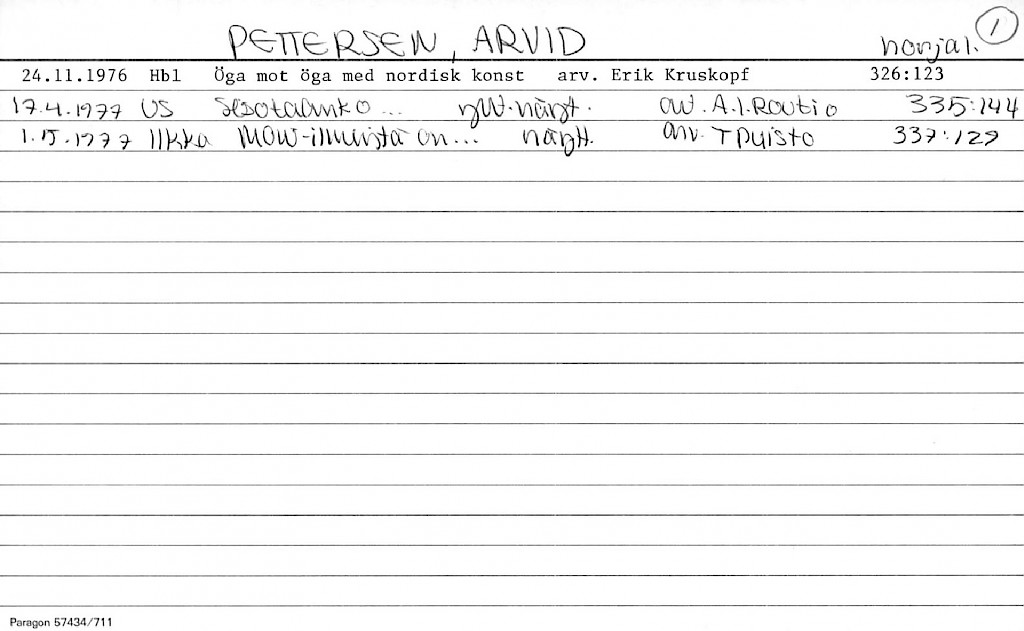 PETTERSEN, ARVID norjal. 1
24.11.1976 Hbl Öga mot öga med nordisk konst arv. Erik Kruskopf 326:123
17.4.1977 US ... arv. A.I. Routio 335:144
1.5.1977 Ilkka on... näytt. arv. T Puisto 337:129
Paragon 57434/711